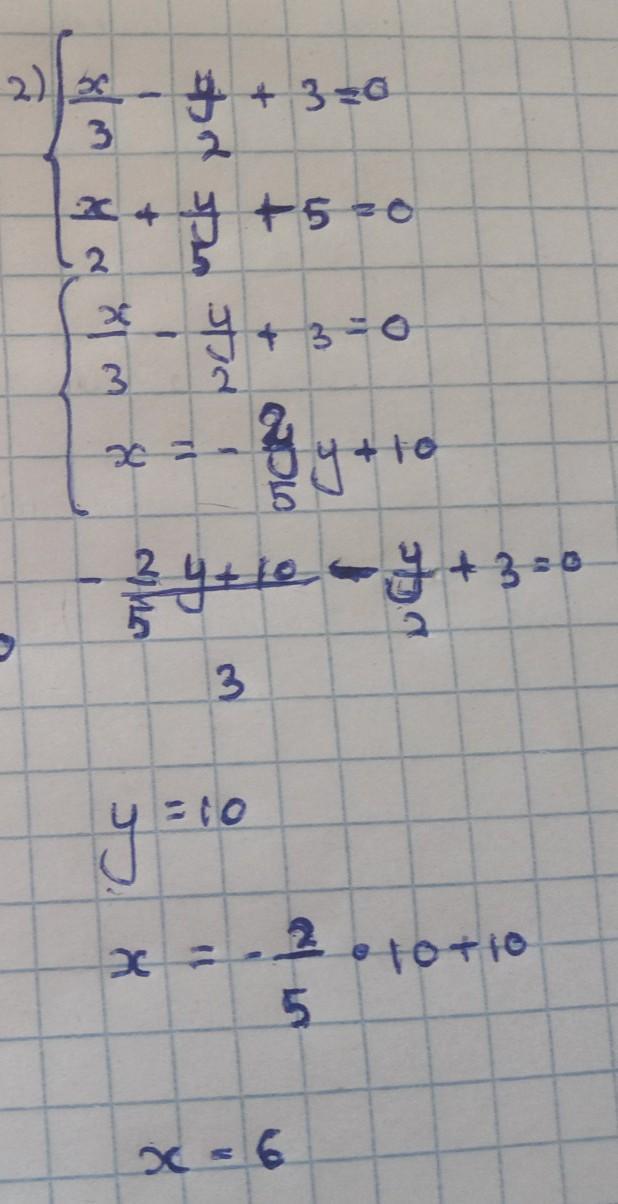 2) { x/3 - y/2 + 3 = 0
x/2 + y/5 + 5 = 0
{ x/3 - y/2 + 3 = 0
x = - 2/5 y + 10
(- 2/5 y + 10)/3 - y/2 + 3 = 0
y = 10
x = - 2/5 • 10 + 10
x = 6